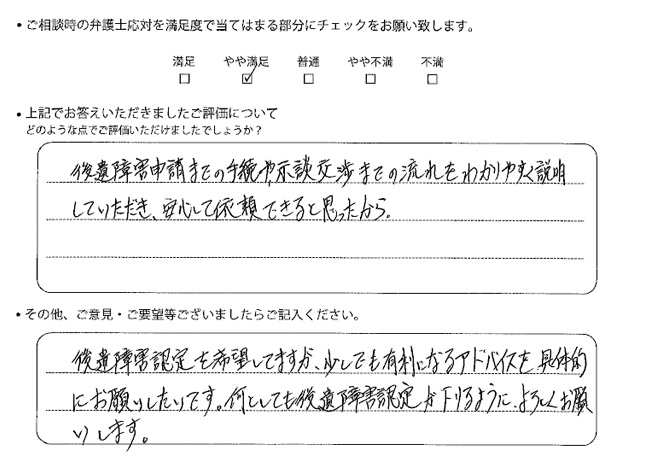 ・ご相談時の弁護士応対を満足度で当てはまる部分にチェックをお願い致します。
満足 やや満足 普通 やや不満 不満
□ ☑ □ □ □
・上記でお答えいただきましたご評価について
どのような点でご評価いただけましたでしょうか？
後遺障害申請までの手続や示談交渉までの流れをわかりやすく説明
していただき、安心して依頼できると思ったから。
・その他、ご意見・ご要望等ございましたらご記入ください。
後遺障害認定を希望してますが、少しでも有利になるアドバイスを具体的
にお願いしたいです。何としても後遺障害認定が下りるように、よろしくお願
いします。